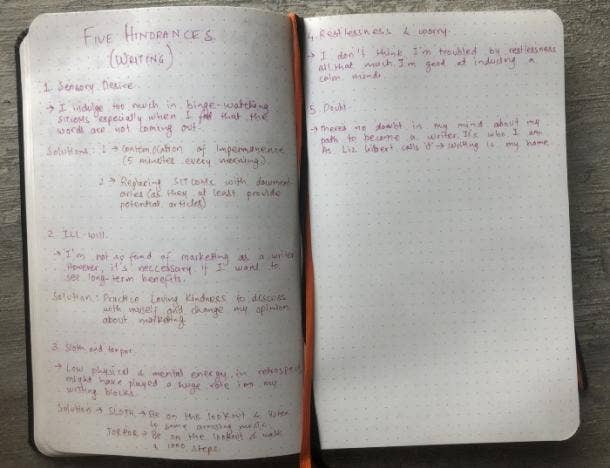 FIVE HINDRANCES
(WRITING)
1. Sensory Desire
→ I indulge too much in binge-watching
sitcoms especially when I feel that the
words are not coming out
Solutions: 1 → Contemplation of Impermanence
(5 minutes every morning)
2 → Replacing SITCOMS with document-
aries (as they at least provide
potential articles)
2. Ill-will
→ I'm not so fond of marketing as a writer
However, it's neccessary if I want to
see long-term benefits.
Solution: Practice Loving Kindness to discuss
with myself and change my opinion
about marketing
3. Sloth and torpor
→ Low physical & mental energy, in retrospect
might have played a huge role in my
writing blocks.
Solution → SLOTH → Be on the lookout & listen
to some amazing music
TORPOR → Be on the lookout & walk
a 1000 steps.
4. Restlessness & worry.
→ I don't think I'm troubled by restlessness
all that much. I'm good at inducing a
calm mind.
5. Doubt
→ There's no doubt in my mind about my
path to become a writer. It's who I am
As Liz Gilbert calls it → writing is my home